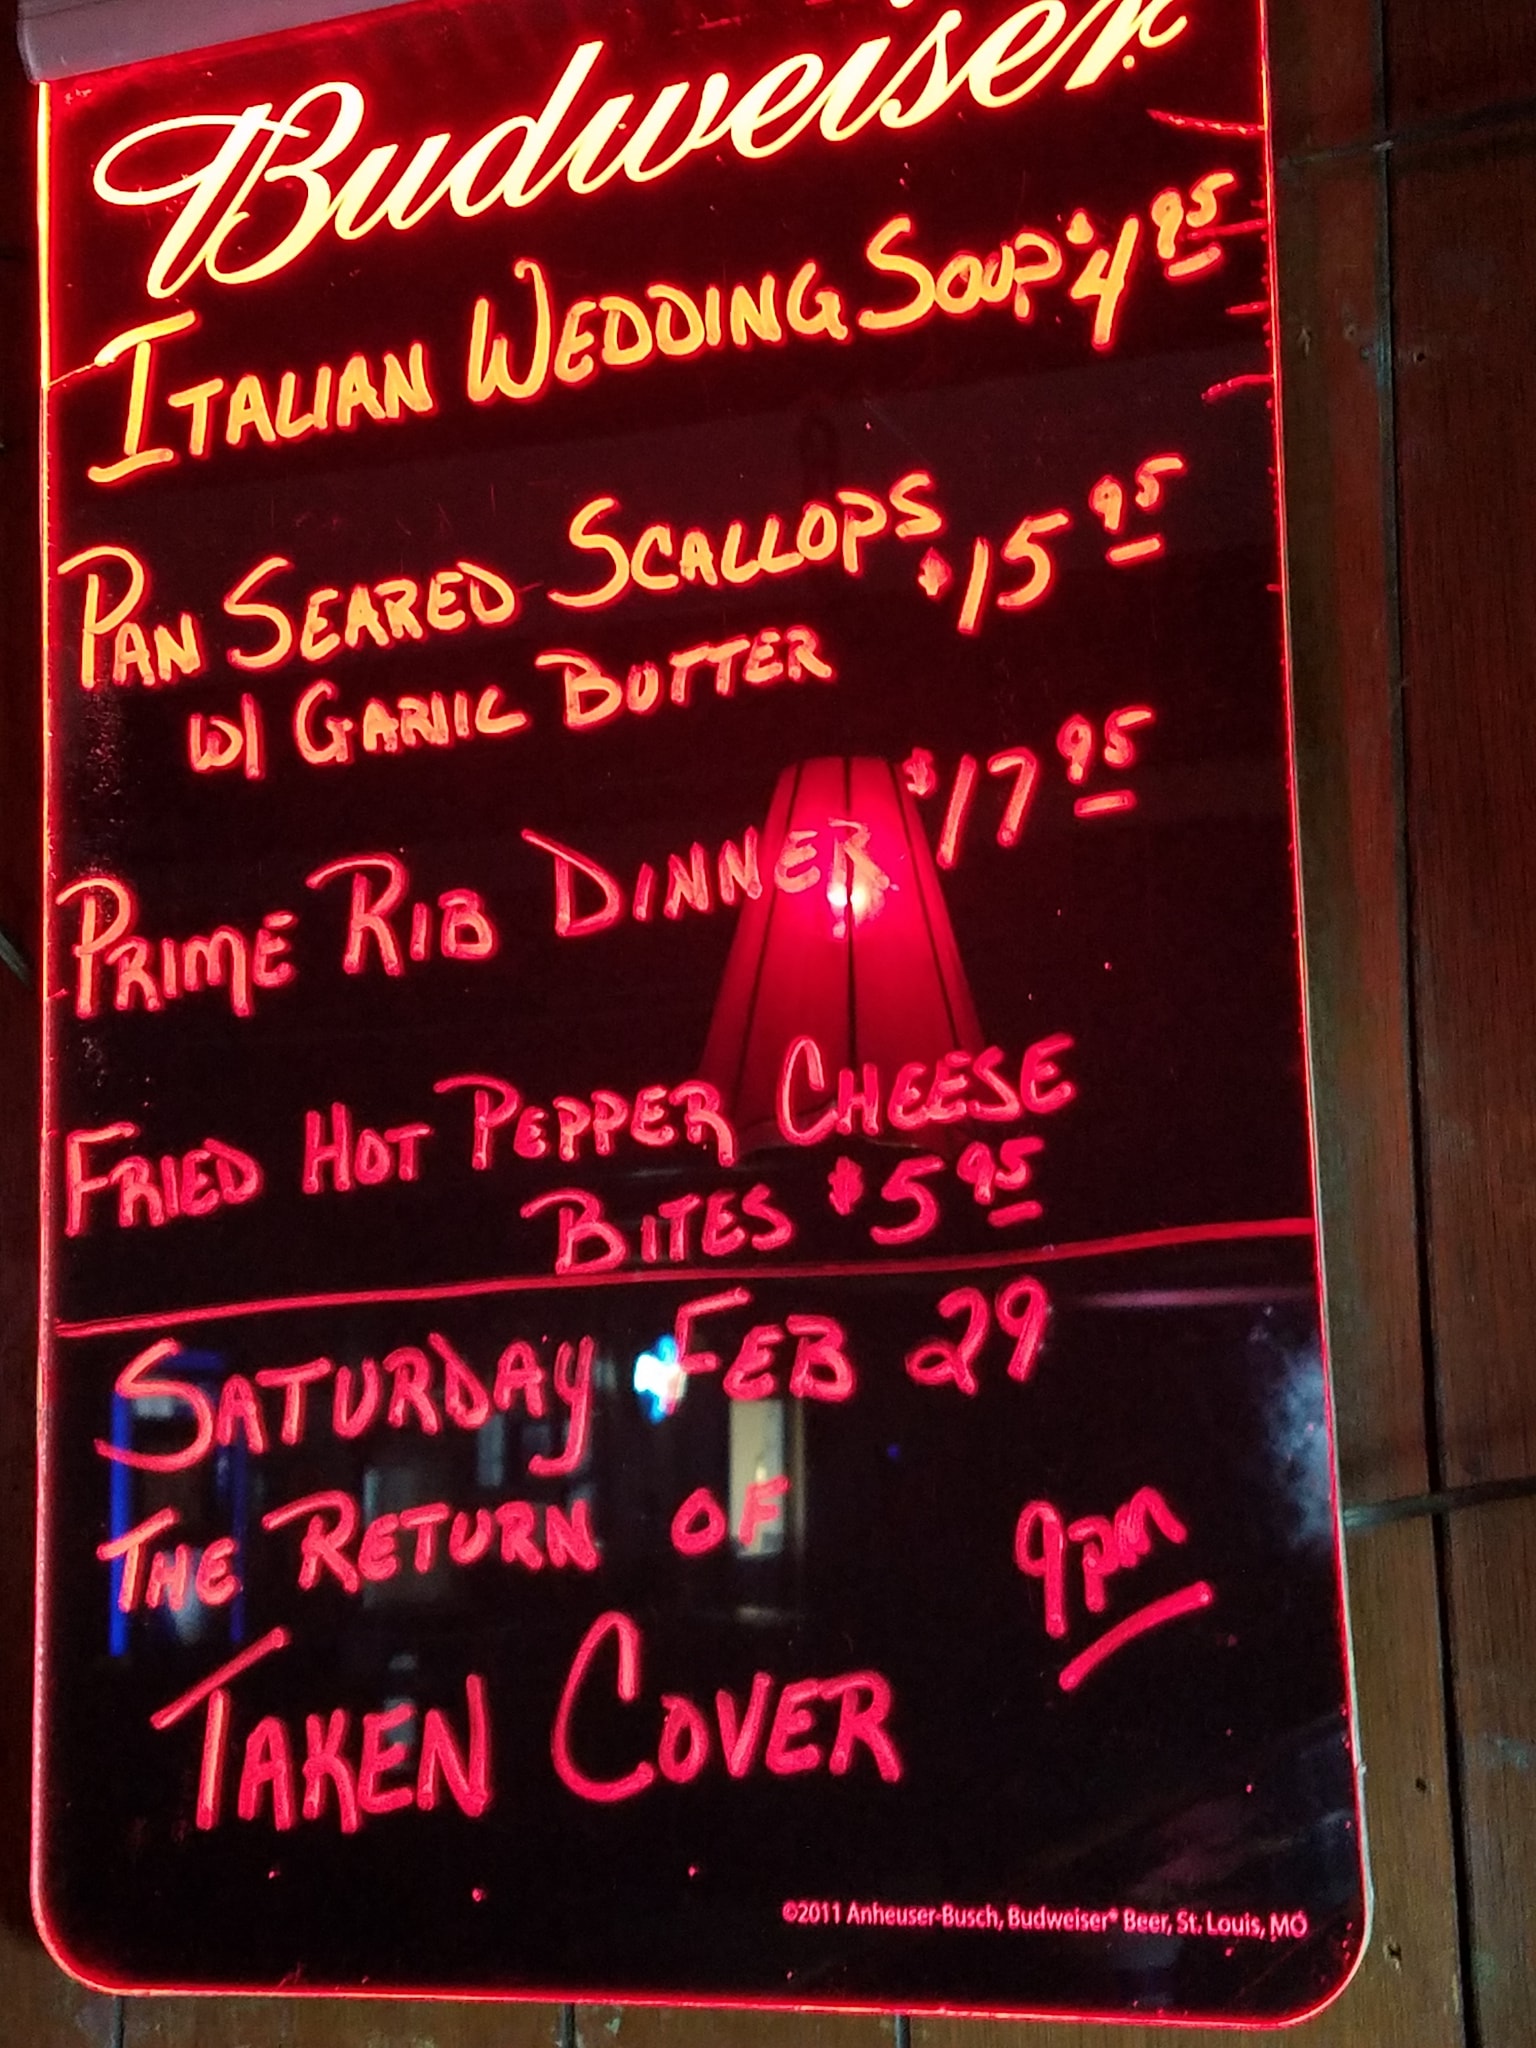 Budweiser
ITALIAN WEDDING SOUP $4.95
PAN SEARED SCALLOPS
W/ GARLIC BUTTER $15.95
PRIME RIB DINNER $17.95
FRIED HOT PEPPER CHEESE
BITES $5.95
SATURDAY FEB 29
THE RETURN OF 9pm
TAKEN COVER
©2011 Anheuser-Busch, Budweiser® Beer, St. Louis, MO